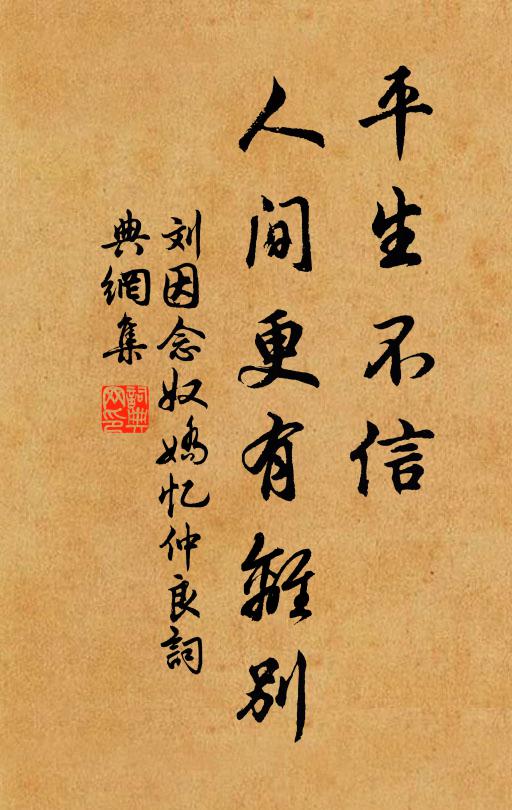 平生不信
人间更有離别
刘因念奴嬌忆仲良詞
典網集
詞典
网印